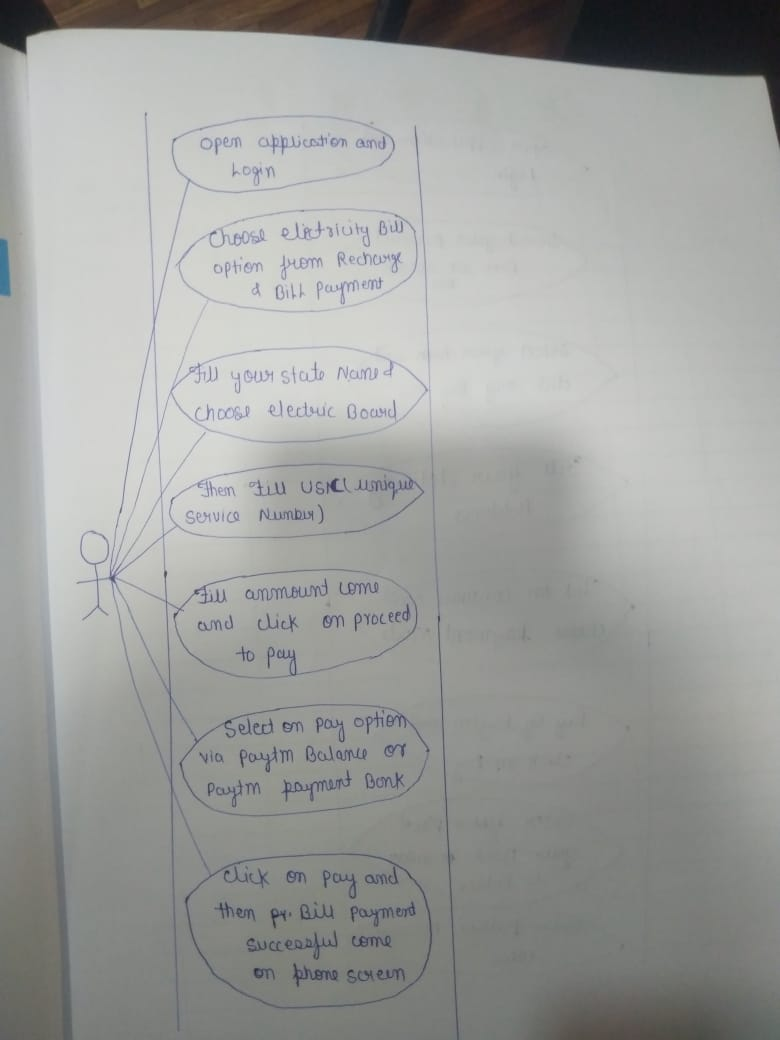 Open application and
Login
Choose electricity Bill
option from Recharge
& Bill Payment
Fill your state Name &
choose electric Board
Then Fill USN( unique
service Number)
Fill anmount come
and click on proceed
to pay
Select on pay option
via paytm Balance or
Paytm payment Bank
click on pay and
then pr. Bill payment
successful come
on phone screen